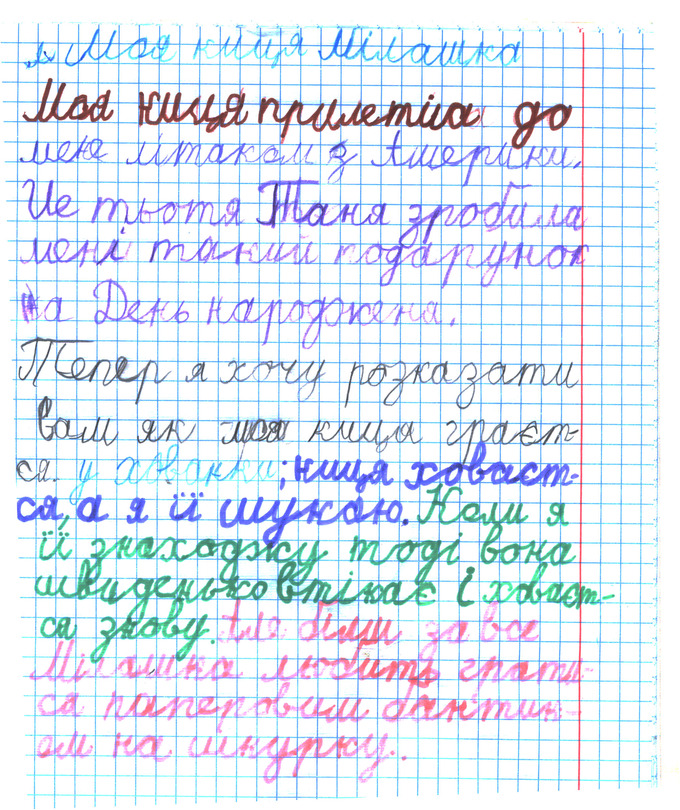 Моя киця Мілашка
Моя киця прилетіла до
мене літаком з Америки.
Це тьотя Таня зробила
мені такий подарунок
на День народження.
Тепер я хочу розказати
вам як моя киця граєт-
ся. у хованки; киця ховаєт-
ся, а я її шукаю. Коли я
її знаходжу тоді вона
швиденько втікає і ховаєт-
ся знову. Але більш за все
Мілашка любить грати-
ся паперовим бантик-
ом на шнурку.